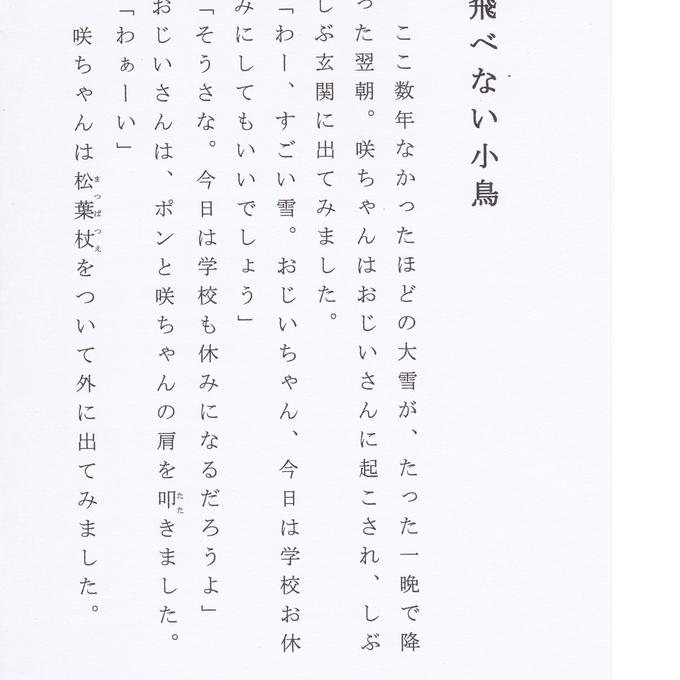 飛べない小鳥
ここ数年なかったほどの大雪が、たった一晩で降
った翌朝。咲ちゃんはおじいさんに起こされ、しぶ
しぶ玄関に出てみました。
「わー、すごい雪。おじいちゃん、今日は学校お休
みにしてもいいでしょう」
「そうさな。今日は学校も休みになるだろうよ」
おじいさんは、ポンと咲ちゃんの肩を叩きました。
「わぁーい」
咲ちゃんは松葉杖をついて外に出てみました。